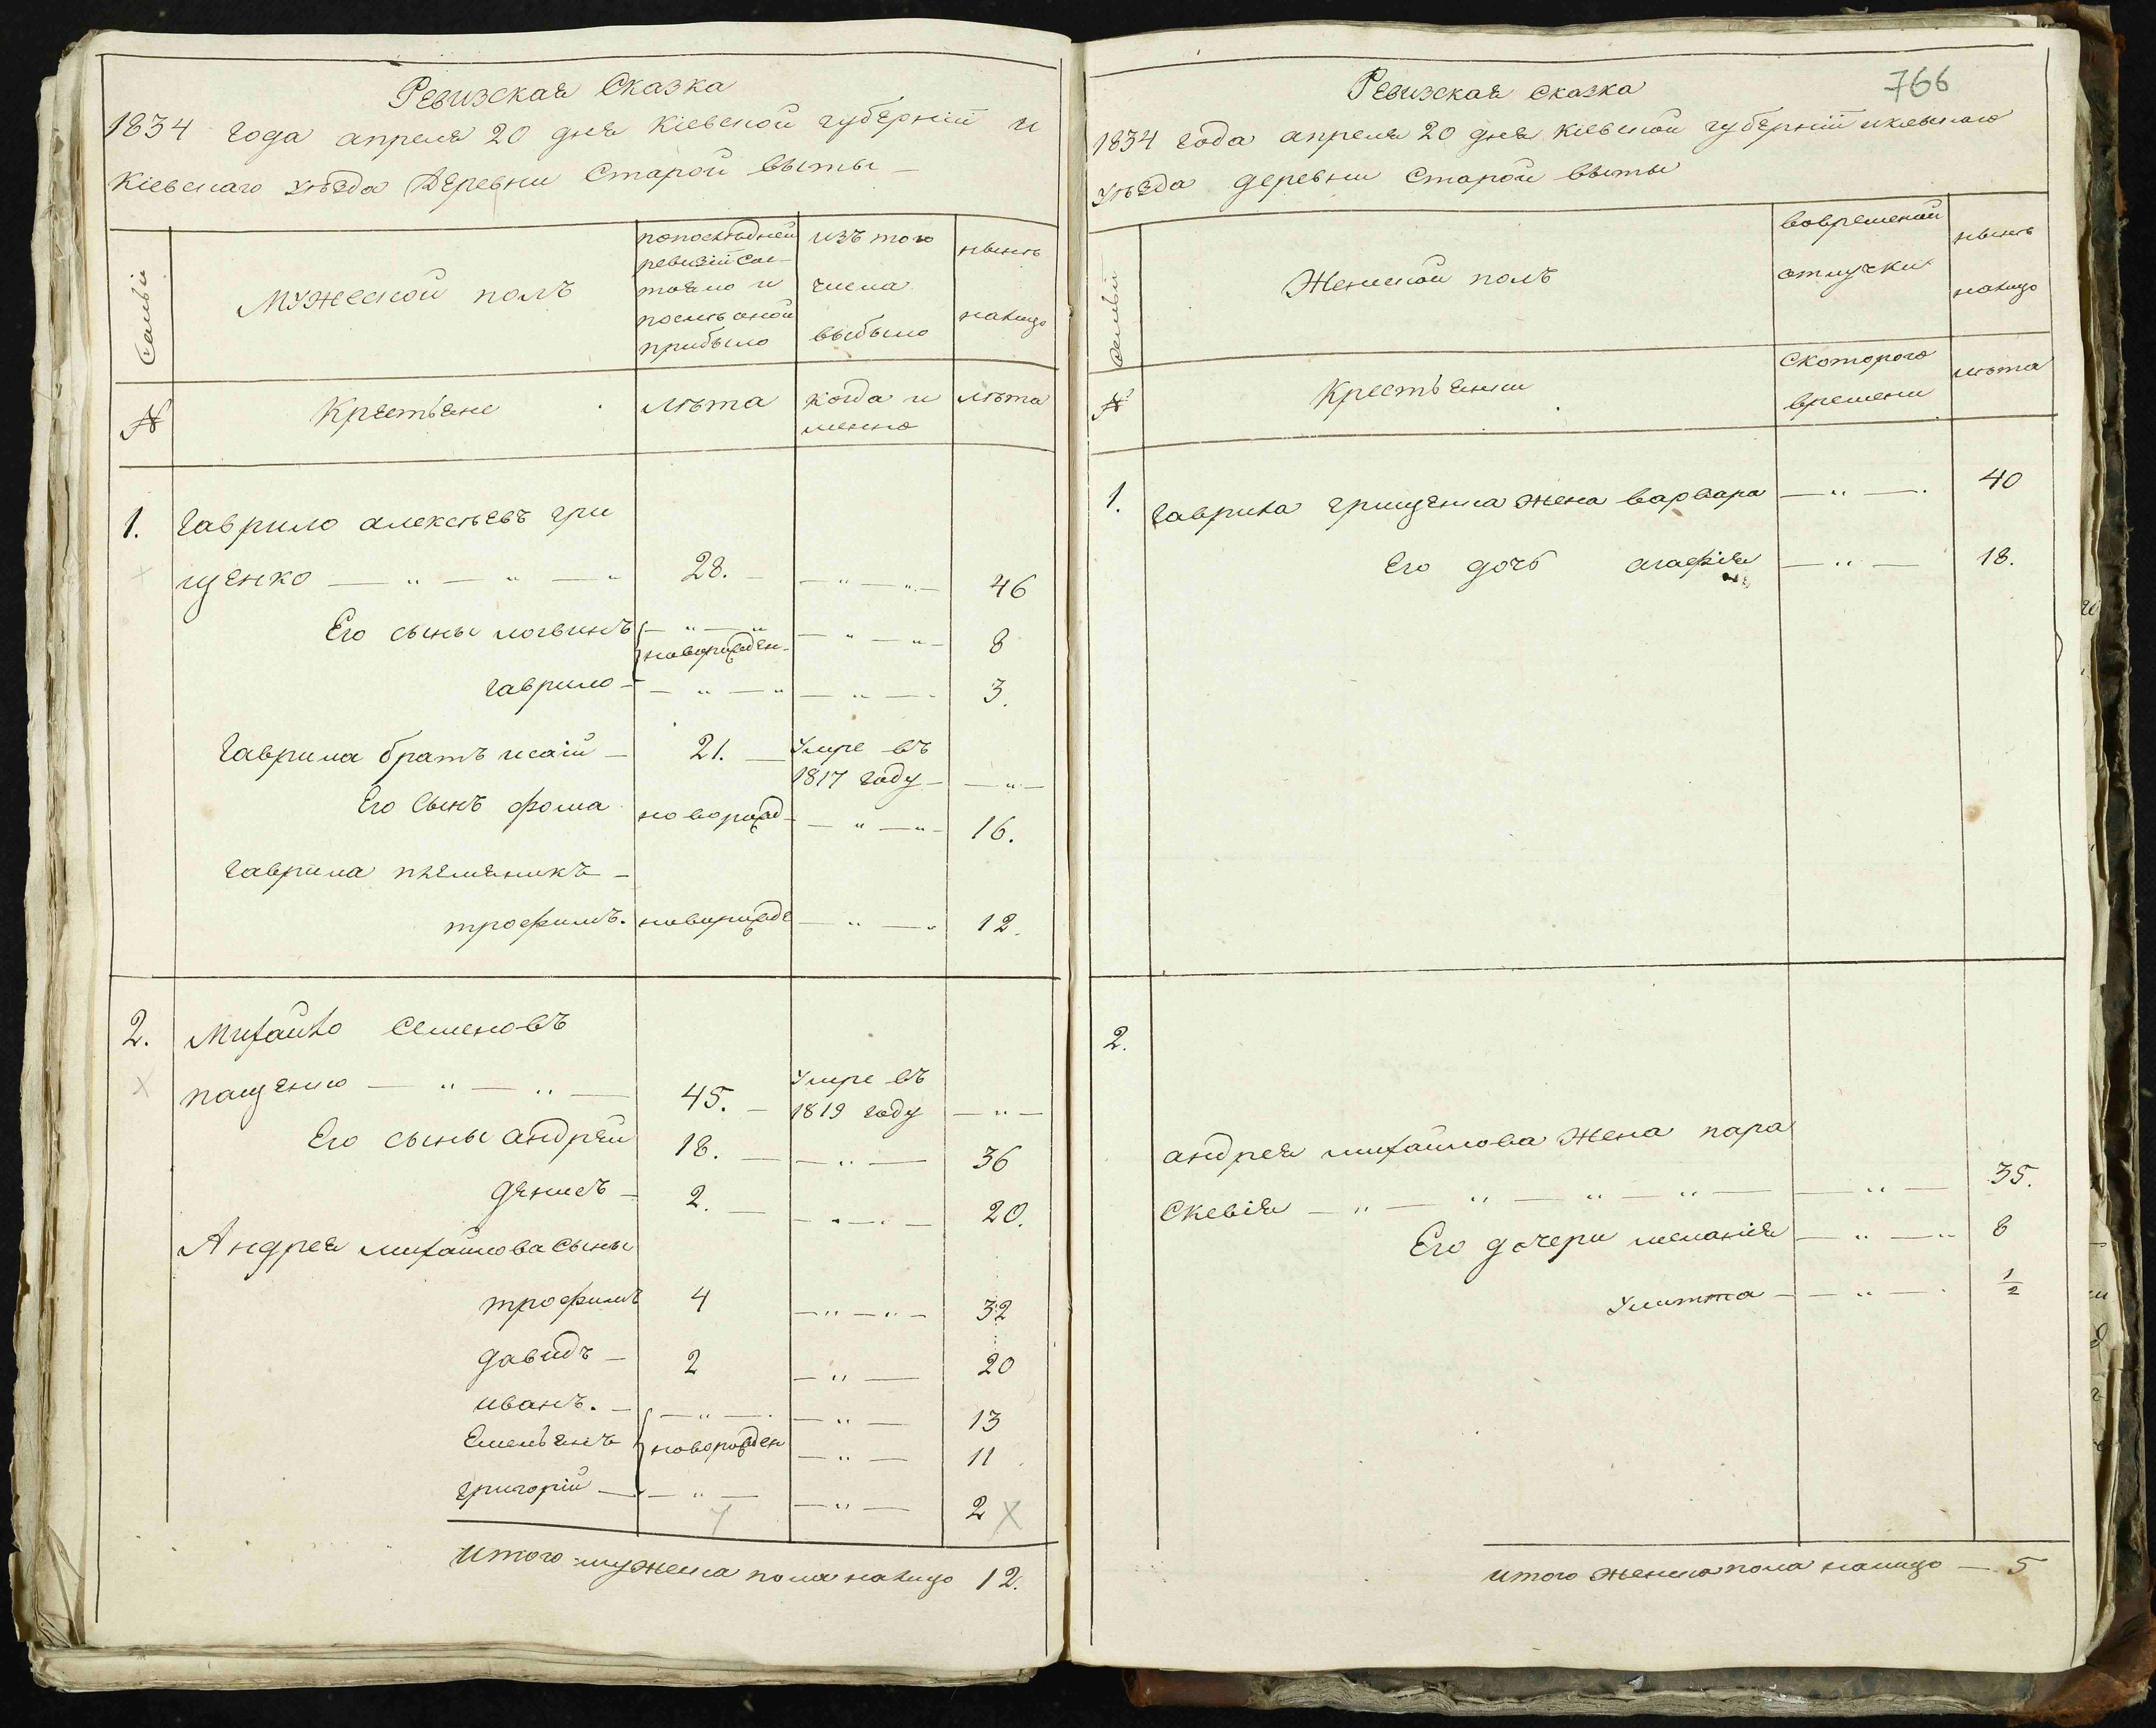 Ревизская Сказка
1834 года апреля 20 дня Кіевской губерніи и
Кіевскаго уѣзда Деревни Старой Выгвы
Семьи
Мужеской полъ
попослѣдней
ревизіи сос-
тояло и
послѣ оной
прибыло
изъ того
числа
выбыло
нынѣ
налицо
№
Крестьяне
лѣта
когда и
менно
лѣта
1. Гаврило алексѣевъ гри
щенко — „ — „ — „ 28. — — „ — „ — 46
Его сыны логвинъ — „ — „ — „ — „ — 8
новорожден-
гаврило — — „ — „ — „ — 3.
Гаврила братъ исаій — 21. — Умре въ
1817 году — — „ —
Его Сынъ фома новорожд — „ — „ — 16.
Гаврила племяникъ —
трофимъ. новорожде — „ — „ 12.
2. Михайло Семеновъ
пащенко — „ — „ — 45. — Умре въ
1819 году — „ —
Его сыны андрей 18. — — „ — 36
денисъ — 2. — — „ — 20.
Андрея михайлова сыны
трофимъ 4 — „ — „ — 32
давидъ — 2 — „ — 20
иванъ. — — „ — — „ — 13
Емельянъ новорожден — „ — 11
григорій — — „ — — „ — 2 X
Итого мужеска пола налицо 12.
766
Ревизская Сказка
1834 года апреля 20 дня Кіевской губерніи икіевскаго
уѣзда деревни Старой
Семьи
Женской полъ
вовременой
отлучки
нынѣ
налицо
№
Крестьянки
Скоторого
времени
лѣта
1. Гаврила грищенка жена варвара — „ — 40
Его дочь агафія — „ — 18.
2.
андрея михайлова Жена пара
скевія — „ — „ — „ — „ — — „ — 35.
Его дочери меланія — „ — „ 8
Улитта — — „ — 1/2
итого женска пола налицо — 5